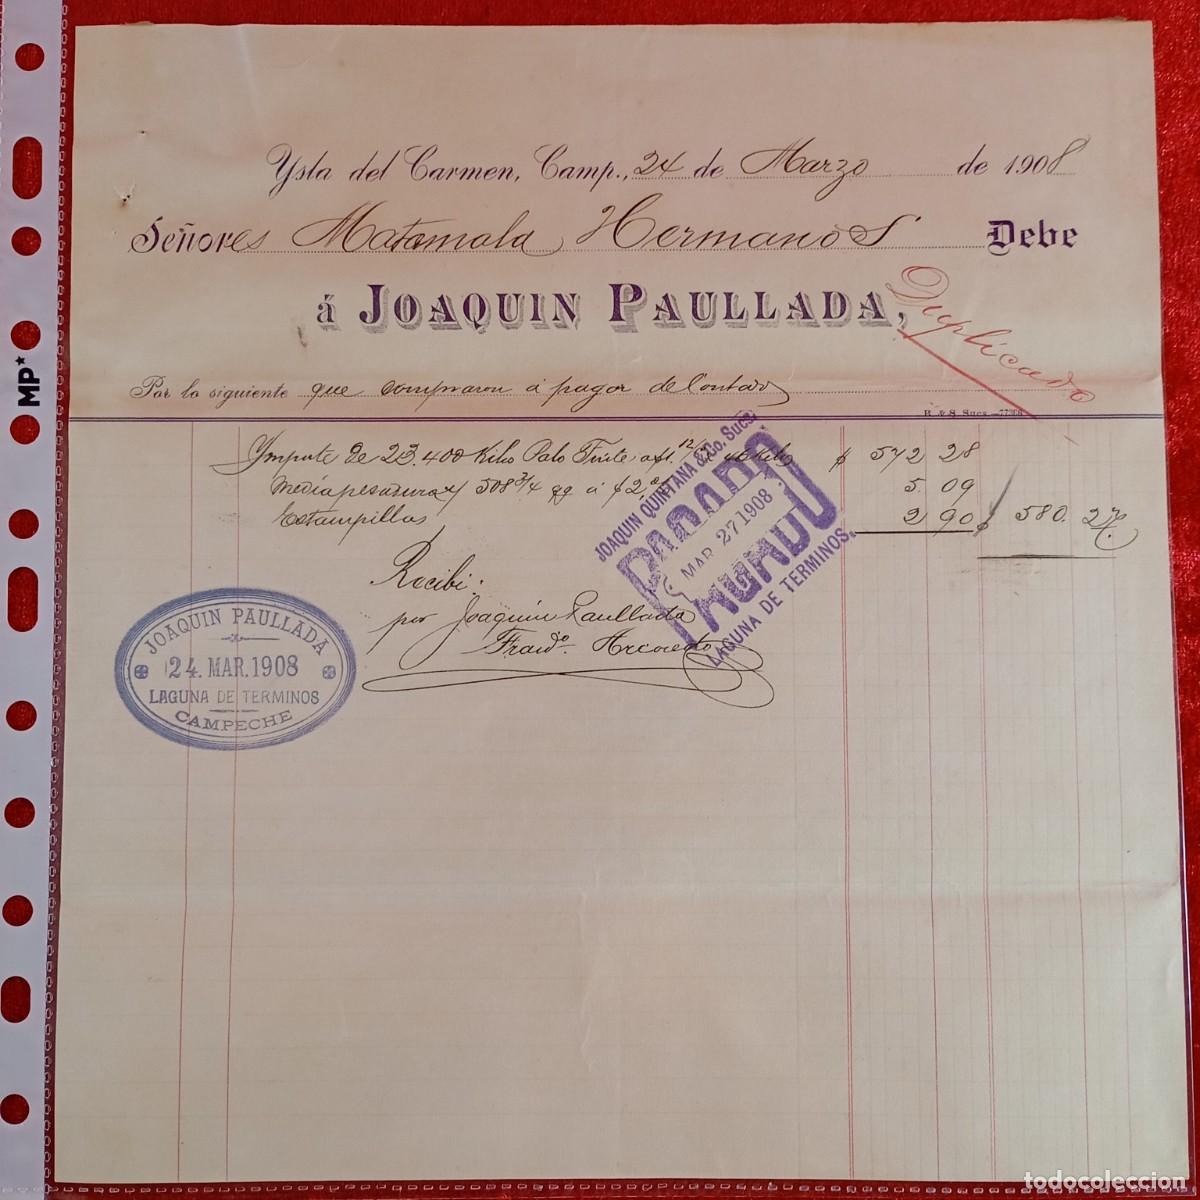 Ysla del Carmen, Camp., 24 de Marzo de 1908
Señores Matamala Hermanos Debe
á JOAQUIN PAULLADA,
Duplicado
Por lo siguiente que compraron á pagar de Contado
B. & S. Sucs.—77308
Ymporte de 23.400 Kilos Palo Tinte a $1. 12/ $ 572 28
Media pesadura s/ 508 3/4 qq á $2, 5 09
Estampillas 2 90 $ 580. 27
Recibí:
por Joaquin Paullada
JOAQUIN QUINTANA & Co. Sucs.
PAGADO
MAR 27 1908
LAGUNA DE TERMINOS.
JOAQUIN PAULLADA
24. MAR. 1908
LAGUNA DE TERMINOS
CAMPECHE
MP*
todocoleccion